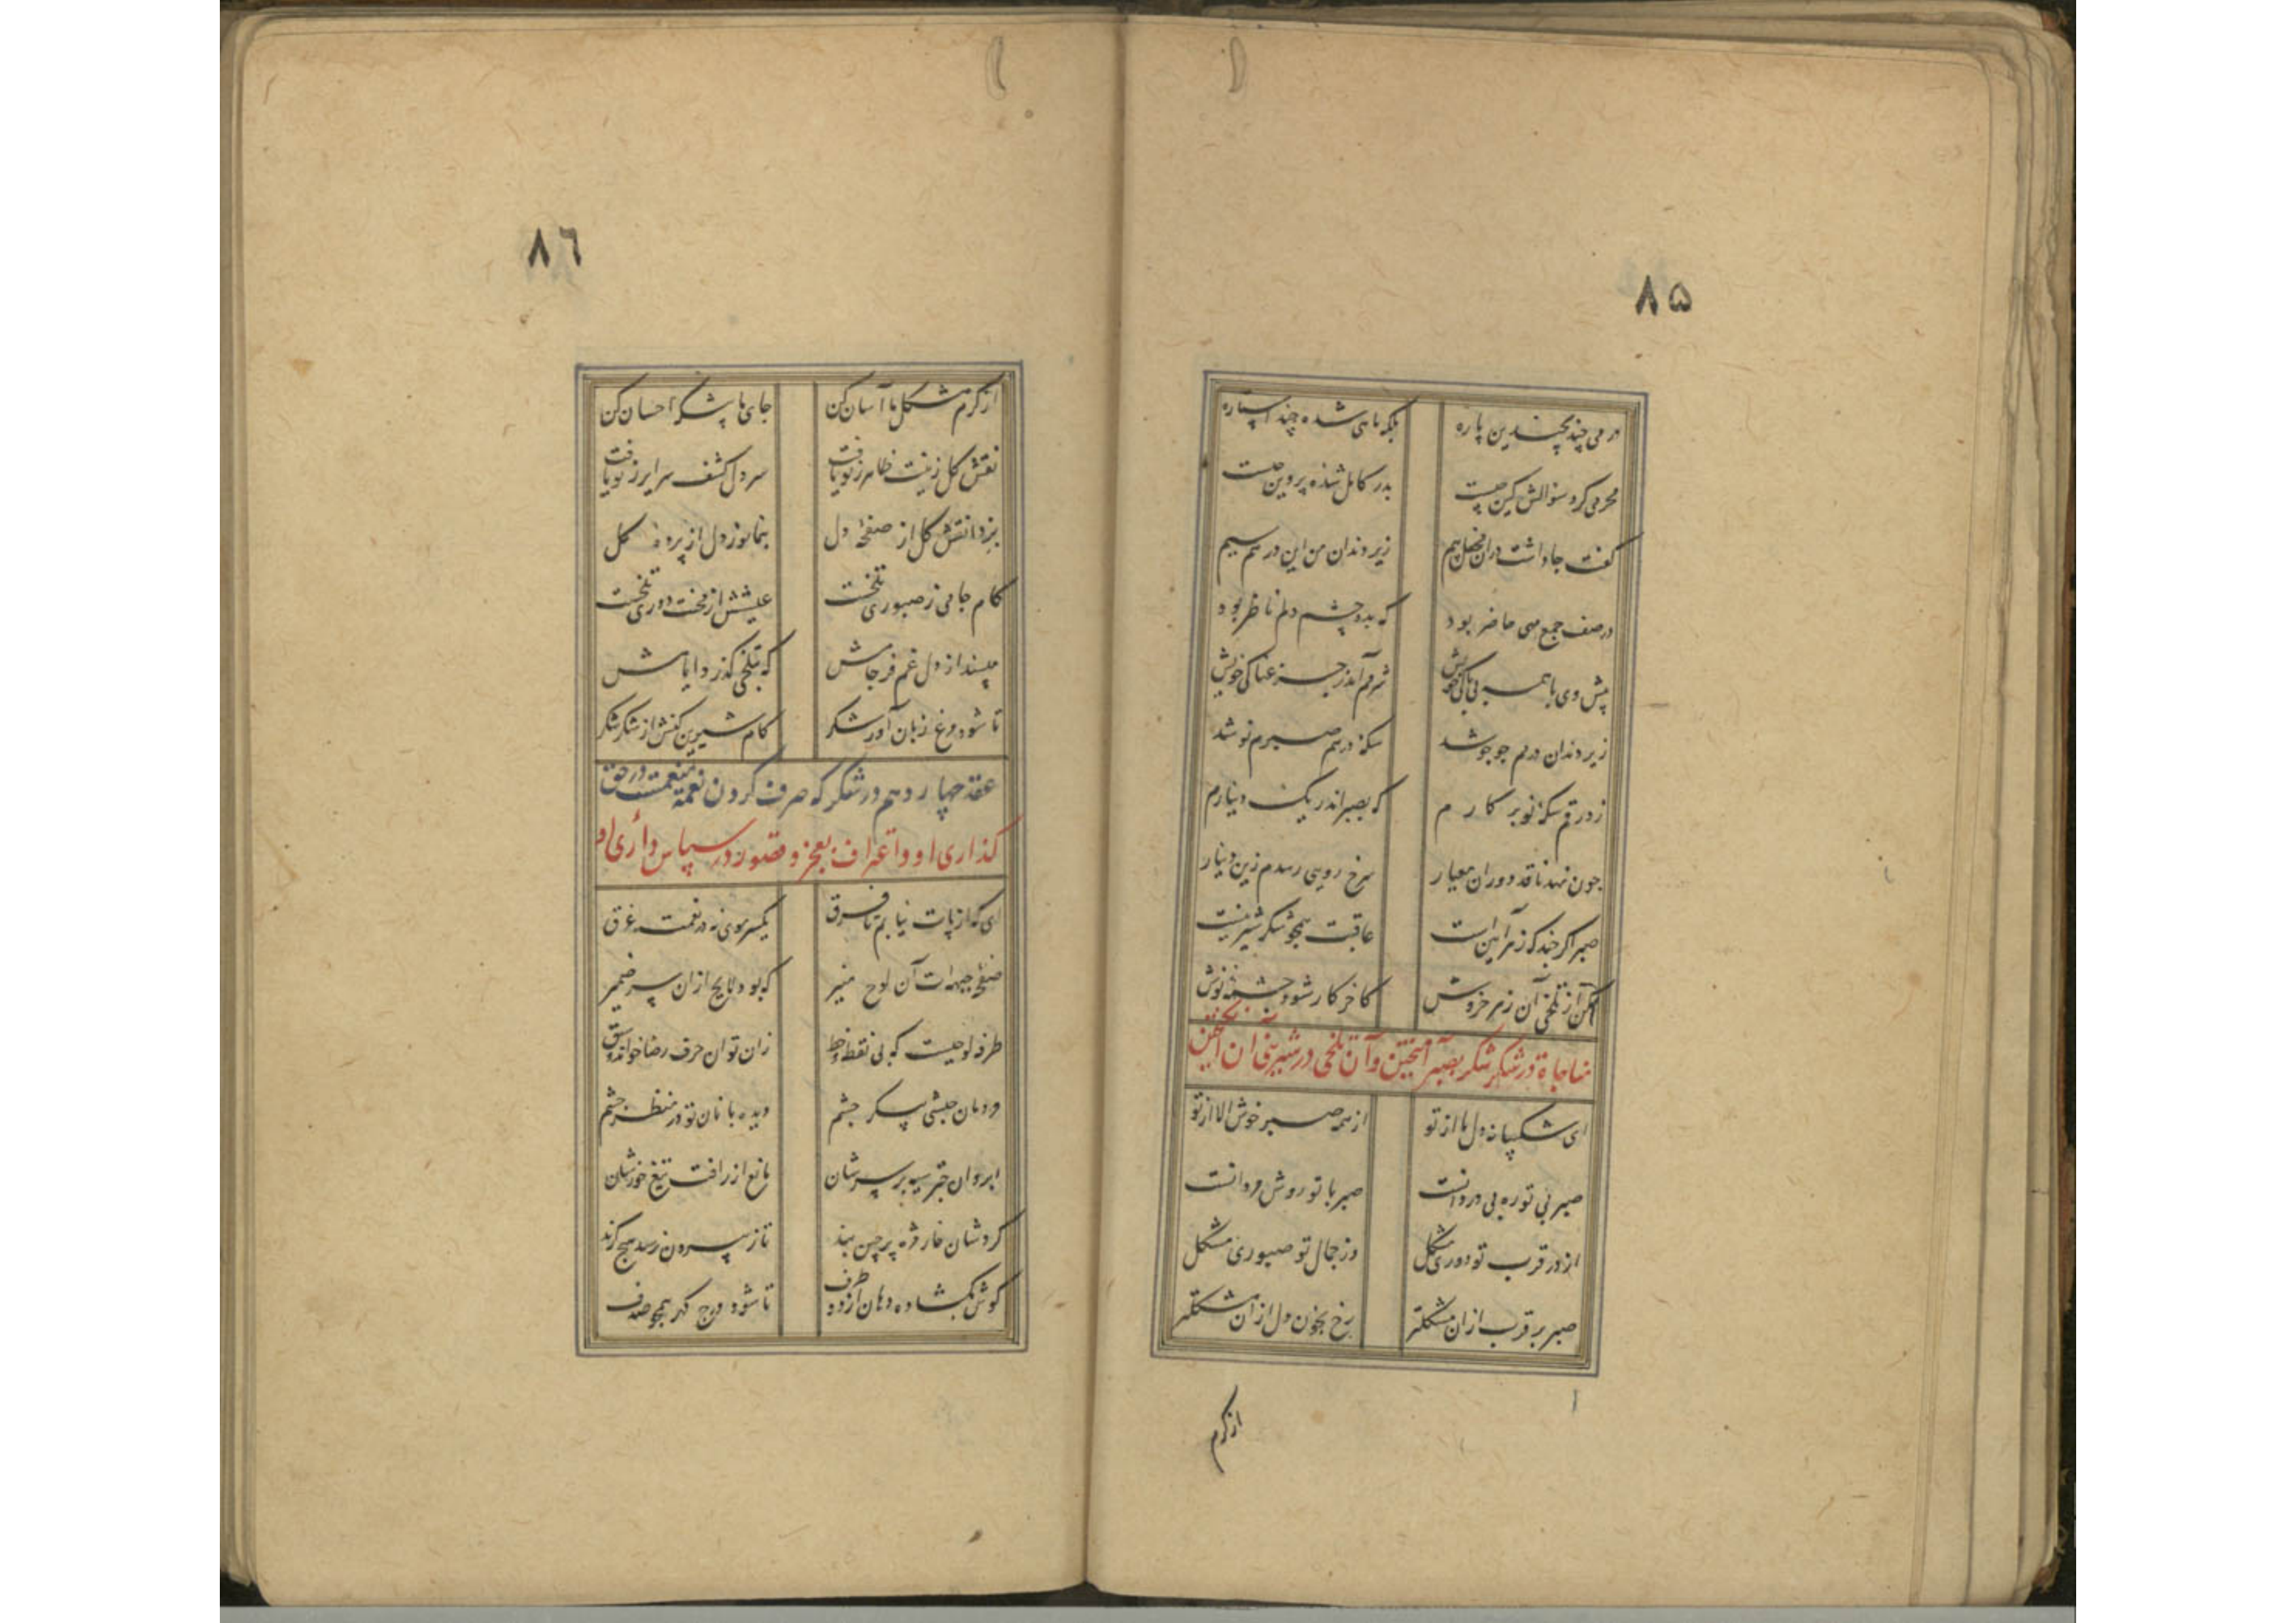 ۸۵
درمی چند بچندین پاره بلکه ماهی شده چند استاره
محرمی کرد سئوالش کین چیست بدر کامل شده پروین چیست
گفت جا داشت دران محفل بیم زیر دندان من این درهم سیم
در صف جمع مهی حاضر بود که بدو چشم دلم ناظر بود
پیش وی با همه بی باکی خویش شرمم آمد ز جزعناکی خویش
زیر دندان درم جو جو شد سکه درهم صبرم نو شد
زد رقم سکه نو بر کارم که بصبر اندر یک دینارم
چون نهد ناقد دوران معیار سرخ رویی رسدم زین دینار
صبر اگر چند که زهر آیین است عاقبت همچو شکر شیرینست
مکن از تلخی آن زهر خروش کاخر کار شود چشمه نوش
مناجاة در شکر شکر بصبر آمیختن و آن تلخی در شیرینی آن
ای شکیبا نه دل ما از تو از همه صبر خوش الا از تو
صبر بی تو ره بی دردانست صبر با تو روش مردانست
از در قرب تو دوری مشکل وز جمال تو صبوری مشکل
صبر بر قرب ازان مشکلتر رخ بخون دل ازان مشکلتر
از کرم
۸٦
از کرم مشکل ما آسان کن جای ما پیشگه احسان کن
نقش گل زینت ظاهر ز تو یافت سر دل کشف سرایر ز تو یافت
بزدا نقش گل از صفحه دل بنما نور دل از پرده گل
کام جامی ز صبوری تلخست عیشش از محنت دوری تلخست
مپسند از دل غم فرجامش که بتلخی گذرد ایامش
تا شود مرغ زبان آور شکر کام شیرین کنش از شکر شکر
عقد چهاردهم در شکر که صرف کردن نعمة منعمست در حق
گذاری او و اعتراف بعجز و قصور در سپاس داری او
ای که از پات نیابم تا فرق یکسر موی نه در نعمت غرق
صفحه جبهه ات آن لوح منیر که بود لایح ازان سر ضمیر
طرفه لوحیست که بی نقطه و خط زان توان حرف رضا خواند و سخط
مردمان حبشی پیکر چشم دیده بانان تو در منظر چشم
ابروان چتر سیه بر سرشان مانع از رافت تیغ خورشان
گردشان خار مژه پرچین بند تا ز بیرون نرسد هیچ گزند
گوش بگشاده دهان از دو طرف تا شود درج گهر همچو صدف